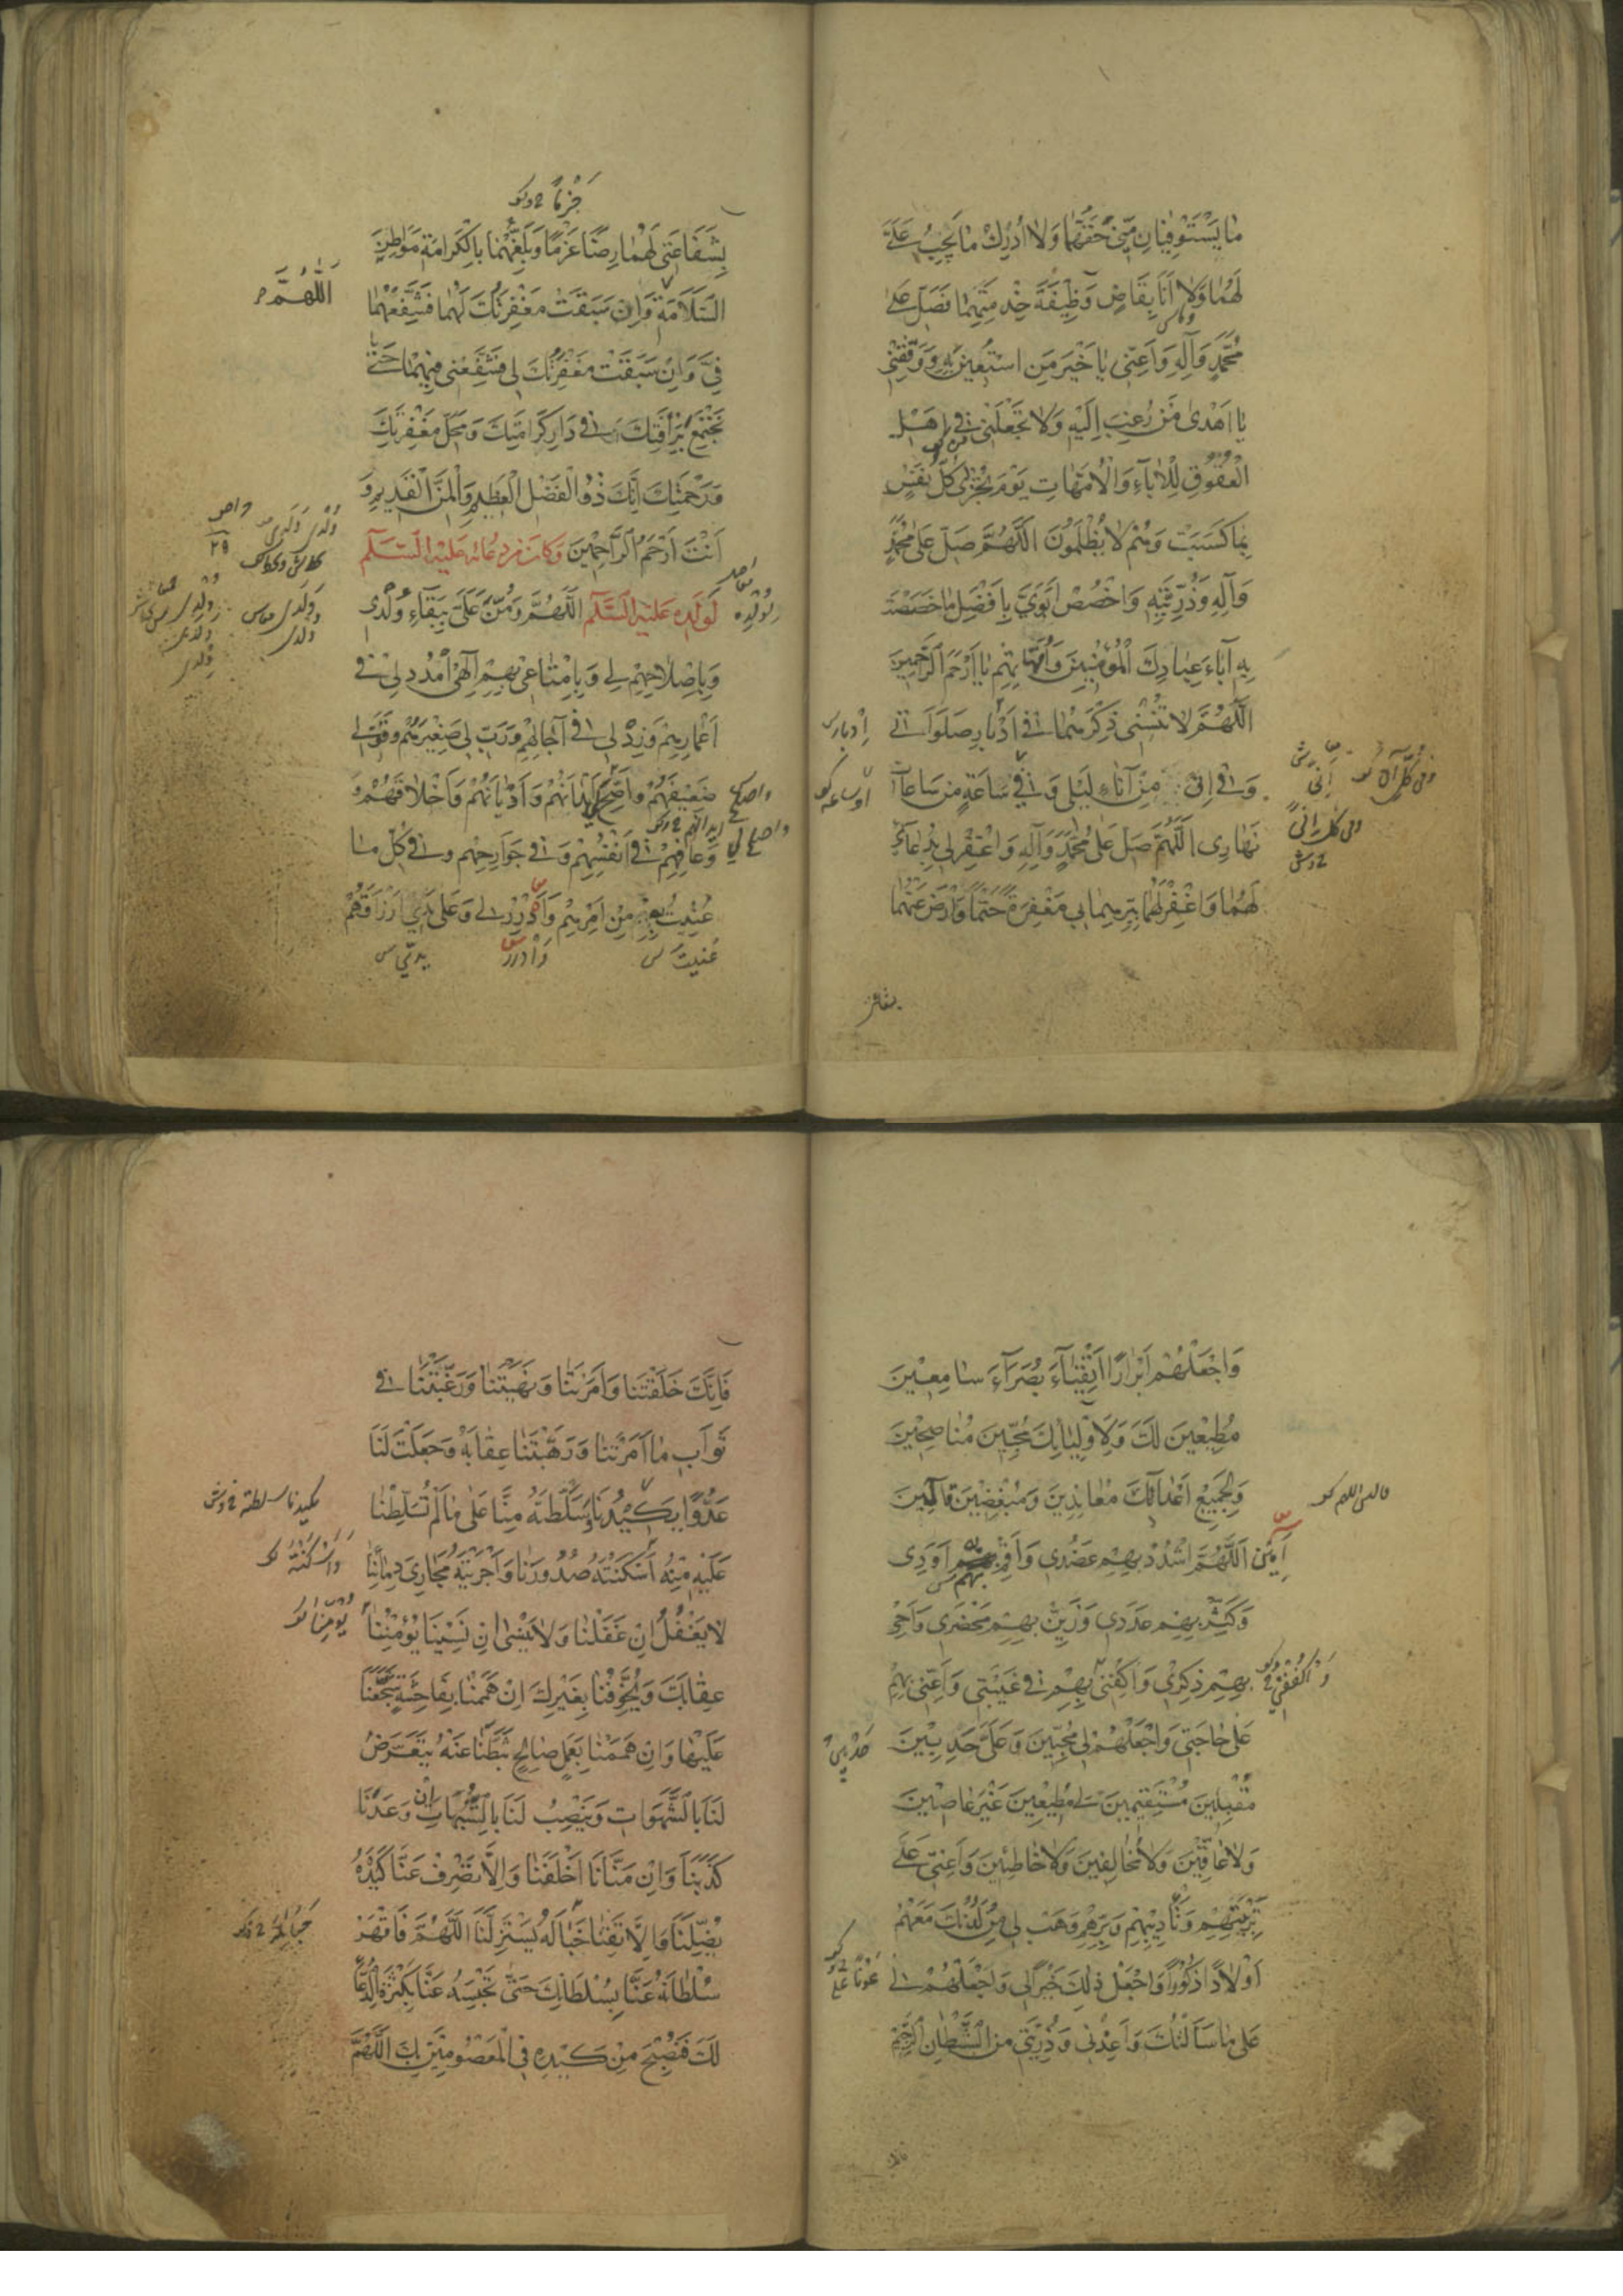 ما يَسْتَوْفِيانِ مِنّى حَقَّهُما وَلا اُدْرِكُ ما يَجِبُ عَلَىَّ
لَهُما وَلا اَنَا بِقاضٍ وَظيفَةَ خِدْمَتِهِما فَصَلِّ عَلى
مُحَمَّدٍ وَآلِهِ وَاَعِنّى يا خَيْرَ مَنِ اسْتُعينَ بِهِ وَوَفِّقْنى
يا اَهْدى مَنْ رُغِبَ اِلَيْهِ وَلا تَجْعَلْنى فى اَهْلِ
الْعُقُوقِ لِلْآباءِ وَالْاُمَّهاتِ يَوْمَ تُجْزى كُلُّ نَفْسٍ
بِما كَسَبَتْ وَهُمْ لا يُظْلَمُونَ اَللّهُمَّ صَلِّ عَلى مُحَمَّدٍ
وَآلِهِ وَذُرِّيَّتِهِ وَاخْصُصْ اَبَوَىَّ بِاَفْضَلِ ما خَصَصْتَ
بِهِ آباءَ عِبادِكَ الْمُؤْمِنينَ وَاُمَّهاتِهِمْ يا اَرْحَمَ الرّاحِمينَ
اَللّهُمَّ لا تُنْسِنى ذِكْرَهُما فى اَدْبارِ صَلَواتى
اِدبار س
وَفى اِنًى مِنْ آناءِ لَيْلى وَفى ساعَةٍ مِنْ ساعاتِ
نَهارى اَللّهُمَّ صَلِّ عَلى مُحَمَّدٍ وَآلِهِ وَاغْفِرْ لى بِدُعائى
لَهُما وَاغْفِرْ لَهُما بِبِرِّهِما بى مَغْفِرَةً حَتْمًا وَارْضَ عَنْهُما
بشفاعتى
جَزْمًا
بِشَفاعَتى لَهُما رِضًا عَزْمًا وَبَلِّغْهُما بِالْكَرامَةِ مَواطِنَ
السَّلامَةِ وَاِنْ سَبَقَتْ مَغْفِرَتُكَ لَهُما فَشَفِّعْهُما
اَللّهُمَّ
فِىَّ وَاِنْ سَبَقَتْ مَغْفِرَتُكَ لى فَشَفِّعْنى فيهِما حَتّى
نَجْتَمِعَ بِرَأْفَتِكَ فى دارِ كَرامَتِكَ وَمَحَلِّ مَغْفِرَتِكَ
وَرَحْمَتِكَ اِنَّكَ ذُو الْفَضْلِ الْعَظيمِ وَالْمَنِّ الْقَديمِ وَ
اَنْتَ اَرْحَمُ الرّاحِمينَ وَكانَ مِنْ دُعائِهِ عَلَيْهِ السَّلام
لِوَلَدِهِ عَلَيْهِ السَّلام اَللّهُمَّ وَمُنَّ عَلَىَّ بِبَقاءِ وُلْدى
لِوُلْدِه
وَبِاِصْلاحِهِمْ لى وَبِاِمْتاعى بِهِمْ اِلهى اُمْدُدْ لى فى
اَعْمارِهِمْ وَزِدْ لى فى آجالِهِمْ وَرَبِّ لى صَغيرَهُمْ وَقَوِّ لى
ضَعيفَهُمْ وَاَصِحَّ لى اَبْدانَهُمْ وَاَدْيانَهُمْ وَاَخْلاقَهُمْ وَ
وَعافِهِمْ فى اَنْفُسِهِمْ وَفى جَوارِحِهِمْ وَفى كُلِّ ما
عُنيتُ بِهِ مِنْ اَمْرِهِمْ وَاَدْرِرْ لى وَعَلى يَدى اَرْزاقَهُمْ
عُنيتُ س وَاَدْرِر يدىّ س
وَاجْعَلْهُمْ اَبْرارًا اَتْقِياءَ بُصَراءَ سامِعينَ
مُطيعينَ لَكَ وَلِاَوْلِيائِكَ مُحِبّينَ مُناصِحينَ
وَلِجَميعِ اَعْدائِكَ مُعانِدينَ وَمُبْغِضينَ قالين
آمينَ اَللّهُمَّ اشْدُدْ بِهِمْ عَضُدى وَاَقِمْ بِهِمْ اَوَدى
وَكَثِّرْ بِهِمْ عَدَدى وَزَيِّنْ بِهِمْ مَحْضَرى وَاَحْىِ
بِهِمْ ذِكْرى وَاكْفِنى بِهِمْ فى غَيْبَتى وَاَعِنّى بِهِمْ
عَلى حاجَتى وَاجْعَلْهُمْ لى مُحِبّينَ وَعَلَىَّ حَدِبينَ
مُقْبِلينَ مُسْتَقيمينَ لى مُطيعينَ غَيْرَ عاصينَ
وَلا عاقّينَ وَلا مُخالِفينَ وَلا خاطِئينَ وَاَعِنّى عَلى
تَرْبِيَتِهِمْ وَتَأْديبِهِمْ وَبِرِّهِمْ وَهَبْ لى مِنْ لَدُنْكَ مَعَهُمْ
اَوْلادًا ذُكُورًا وَاجْعَلْ ذلِكَ خَيْرًا لى وَاجْعَلْهُمْ لى
عَوْنًا
عَلى ما سَاَلْتُكَ وَاَعِذْنى وَذُرِّيَّتى مِنَ الشَّيْطانِ الرَّجيمِ
فانك
فَاِنَّكَ خَلَقْتَنا وَاَمَرْتَنا وَنَهَيْتَنا وَرَغَّبْتَنا فى
ثَوابِ ما اَمَرْتَنا وَرَهَّبْتَنا عِقابَهُ وَجَعَلْتَ لَنا
عَدُوًّا يَكيدُنا وَسَلَّطْتَهُ مِنّا عَلى ما لَمْ تُسَلِّطْنا
عَلَيْهِ مِنْهُ اَسْكَنْتَهُ صُدُورَنا وَاَجْرَيْتَهُ مَجارِىَ دِمائِنا
وَاَسْكَنْتَهُ
لا يَغْفُلُ اِنْ غَفَلْنا وَلا يَنْسى اِنْ نَسينا يُؤْمِنُنا
عِقابَكَ وَيُخَوِّفُنا بِغَيْرِكَ اِنْ هَمَمْنا بِفاحِشَةٍ شَجَّعَنا
عَلَيْها وَاِنْ هَمَمْنا بِعَمَلٍ صالِحٍ ثَبَّطَنا عَنْهُ يَتَعَرَّضُ
لَنا بِالشَّهَواتِ وَيَنْصِبُ لَنا بِالشُّبُهاتِ اِنْ وَعَدَنا
كَذَبَنا وَاِنْ مَنّانا اَخْلَفَنا وَاِلّا تَصْرِفْ عَنّا كَيْدَهُ
يُضِلَّنا وَاِلّا تَقِنا خَبالَهُ يَسْتَزِلَّنا اَللّهُمَّ فَاقْهَرْ
سُلْطانَهُ عَنّا بِسُلْطانِكَ حَتّى تَحْبِسَهُ عَنّا بِكَثْرَةِ الدُّعاءِ
لَكَ فَنُصْبِحَ مِنْ كَيْدِهِ فِى الْمَعْصُومينَ بِكَ اَللّهُمَّ